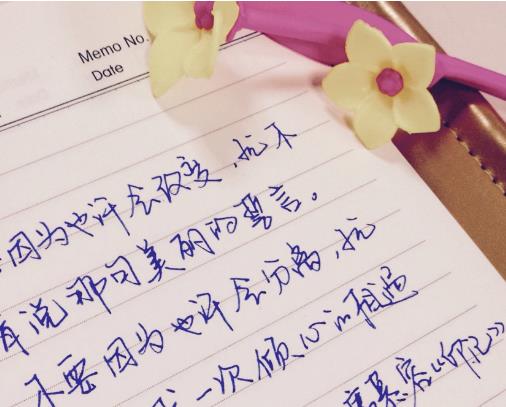 Memo No.
Date
因为也许会改变，就不
肯说那句美丽的誓言。
不要因为也许会分离，就
一次倾心的相遇
席慕容《印记》